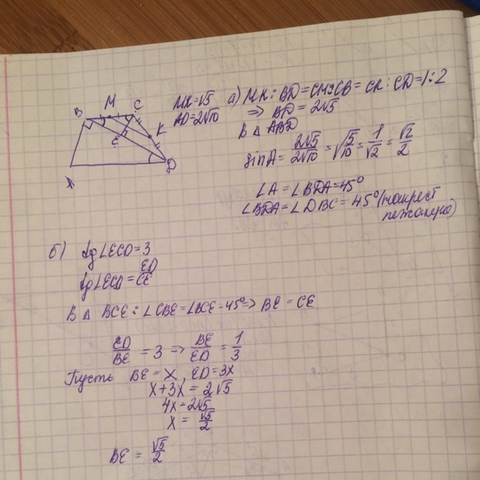 M C
B
K
E
D
A
MK=√5
AD=2√10
а) MK : BD = CM : CB = CK : CD = 1:2
⇒ BD = 2√5
В Δ ABD
sin A = 2√5/2√10 = √5/10 = 1/√2 = √2/2
∠A = ∠BDA = 45°
∠BDA = ∠DBC = 45° (накрест
лежащие)
б) tg∠ECD = 3
tg∠ECD = ED/CE
В Δ BCE: ∠CBE = ∠BCE = 45° ⇒ BE = CE
ED/BE = 3 ⇒ BE/ED = 1/3
Пусть BE = x, ED = 3x
x + 3x = 2√5
4x = 2√5
x = √5/2
BE = √5/2